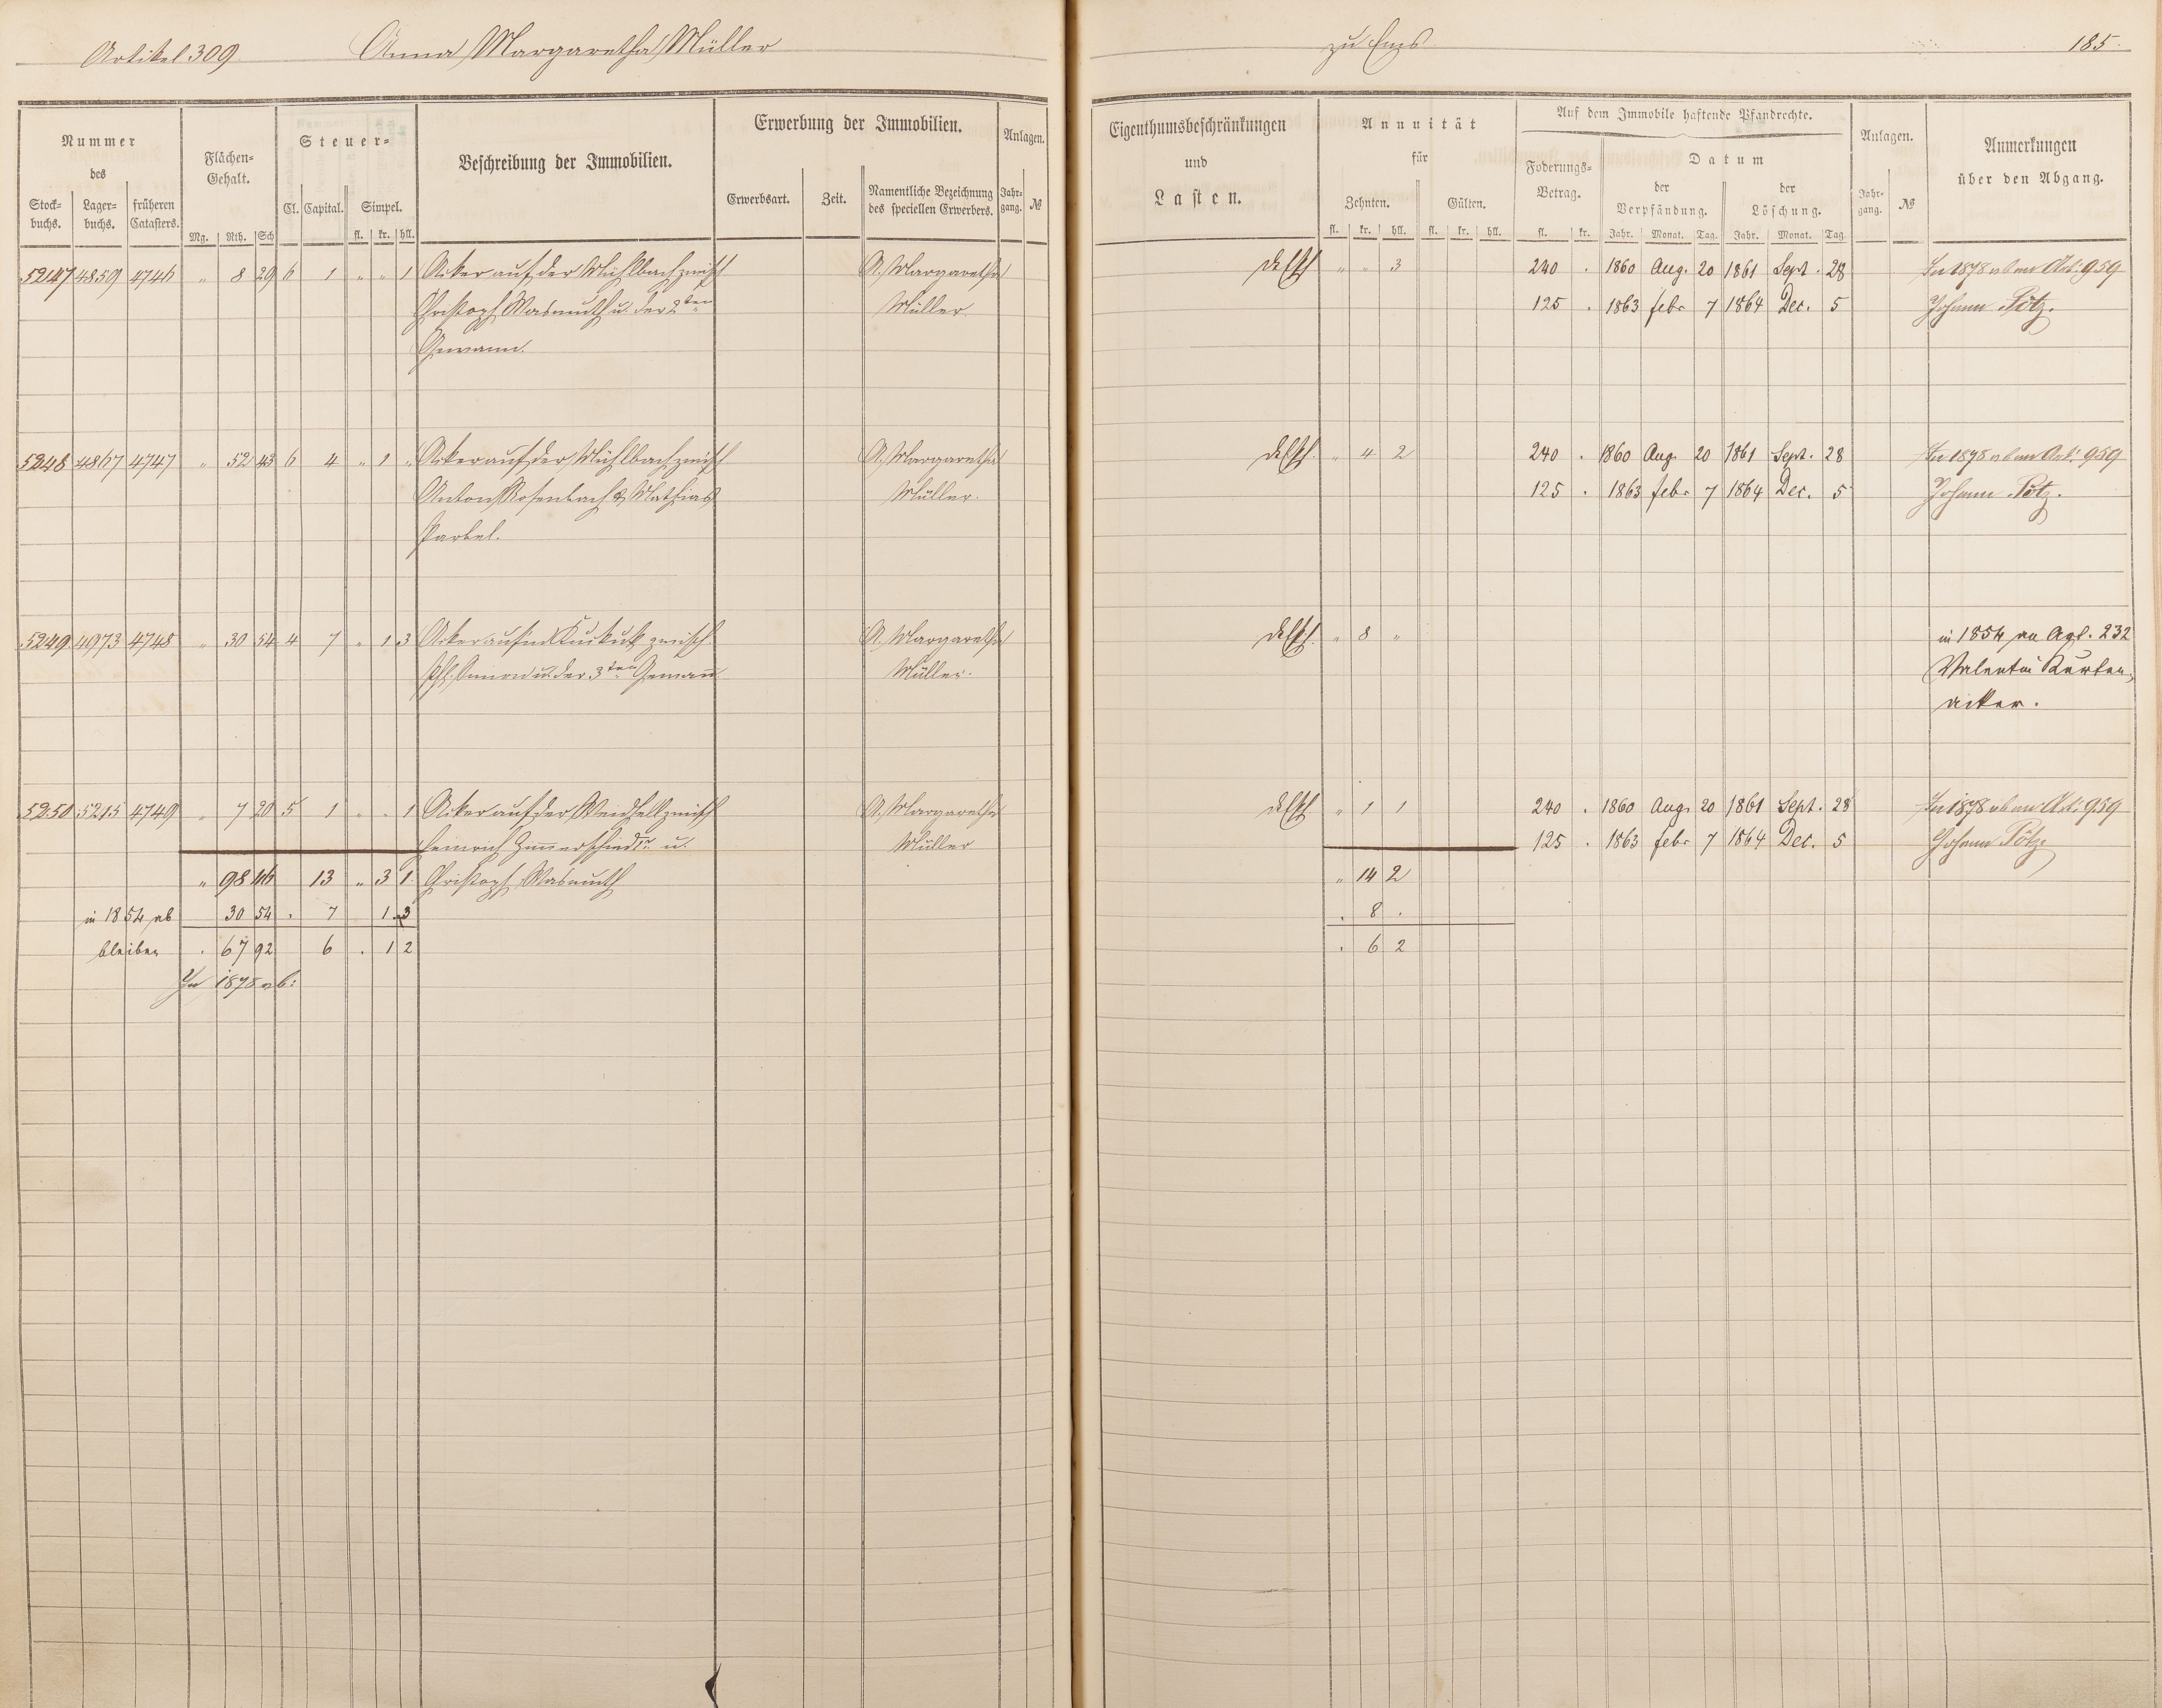 Artikel 309. Anna Margaretha Müller zu Ems 185.
Nummer des
Stock-buchs. Lager-buchs. früheren Catasters.
Flächen-Gehalt.
Mg. Rth. Sch
Steuer-
Cl. Capital. Simpel.
fl. kr. hll.
Beschreibung der Immobilien.
Erwerbung der Immobilien.
Erwerbsart. Zeit. Namentliche Bezeichnung des speciellen Erwerbers.
Anlagen.
Jahr-gang. №
Eigenthumsbeschränkungen
und
Lasten.
Annuität
für
Zehnten. Gülten.
fl. kr. hll. fl. kr. hll.
Auf dem Immobile haftende Pfandrechte.
Foderungs-Betrag.
fl. kr.
Datum
der Verpfändung. der Löschung.
Jahr. Monat. Tag. Jahr. Monat. Tag
Anlagen.
Jahr-gang. №
Anmerkungen
über den Abgang.
5247 4859 4746 " 8 29 6 1 " " 1 Acker auf der Mühlbach zwisch A. Margaretha " " 3 240 . 1860 Aug. 20 1861 Sept. 28 In 1878 ab an Art: 959
Christoph Wasmuth u. der 2ten Müller. 125 . 1863 febr 7 1864 Dec. 5 Johann Pötz.
Gewann.
5248 4867 4747 " 52 43 6 4 " 1 " Acker auf der Mühlbach zwisch A. Margaretha " 4 2 240 . 1860 Aug. 20 1861 Sept. 28 In 1878 ab an Art: 959
Anton Rosenbach & Mathias Müller. 125 . 1863 febr 7 1864 Dec. 5 Johann Pötz.
5249 4973 4748 " 30 54 4 7 " 1 3 Acker auf'm Kuckuk zwisch. A. Margaretha " 8 " in 1854 an Agl. 232
u. der 3ten Gewann Müller. Valentin
acker.
5250 5215 4749 " 7 20 5 1 " " 1 Acker auf der Weidhell zwisch A. Margaretha " 1 1 240 . 1860 Aug. 20 1861 Sept. 28 In 1878 ab an Art: 959
Heinrich Zimmerschied u. Müller 125 . 1863 febr 7 1864 Dec. 5 Johann Pötz
" 98 46 13 " 3 1 Christoph Wasmuth " 14 2
in 1854 ab 30 54 . 7 1 3 . 8 .
bleiben . 67 92 6 . 1 2 . 6 2
In 1878 ab: